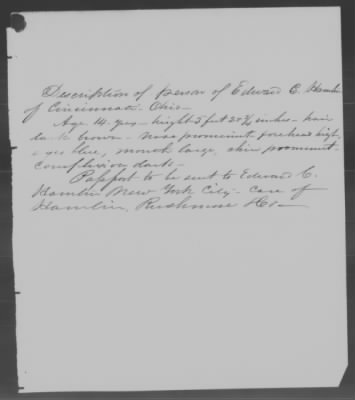 Description of person of Edward C. Hamlin
of Cincinnati - Ohio -
Age 14 yrs - hight 5 feet 2 ½ inches - hair
dark brown - nose prominent, forehead high,
eyes blue, mouth large, chin prominent
complexion dark -
Passport to be sent to Edward C.
Hamlin New York City - care of
Hamlin, Rushmore & Co -